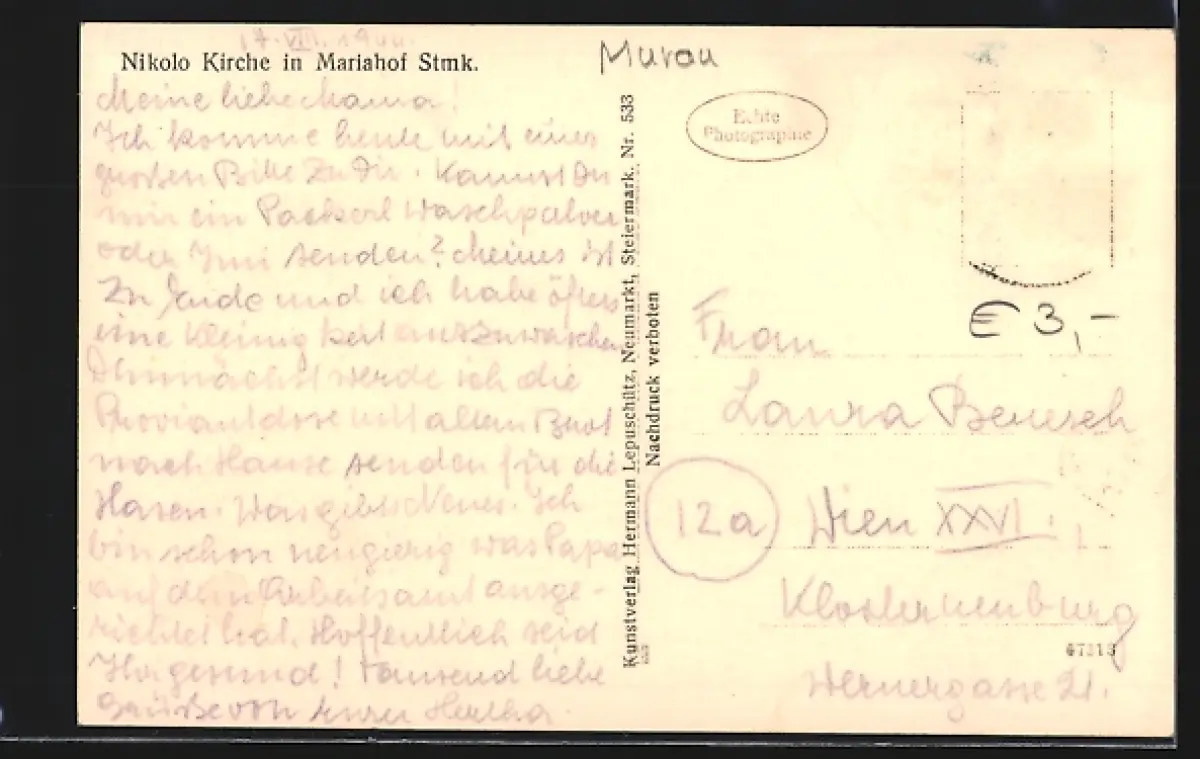 17. VIII. 1944.
Nikolo Kirche in Mariahof Stmk.
Meine liebe Mama!
Ich komme heute mit einer
großen Bitte zu Dir. Kannst Du
mir ein Packerl Waschpulver
oder Imi senden? Meines ist
zu Ende und ich habe öfters
eine Kleinigkeit auszuwaschen
Demnächst werde ich die
Proviantdose mit altem Brot
nach Hause senden für die
Hasen. Was gibts Neues. Ich
bin schon neugierig was Papa
auf dem Arbeitsamt ausge-
richtet hat. Hoffentlich seid
Ihr gesund! Tausend liebe
Grüße von Eurer Hertha.
Kunstverlag Hermann Lepuschütz, Neumarkt, Steiermark. Nr. 533
Nachdruck verboten
Murau
Echte
Photographie
€ 3,-
Frau
Laura Benesch
12a
Wien XXVI.
Klosterneuburg
47313
Wernergasse 21.